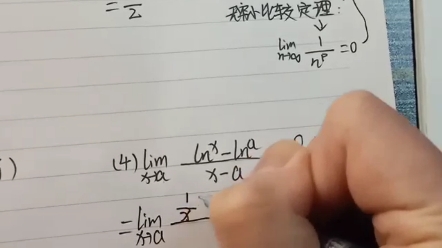 = 1/2
无穷小比较定理:
↓
lim n→∞ 1/n^p = 0
(4) lim x→a (ln^x - ln^a)/(x-a)
= lim x→a 1/x